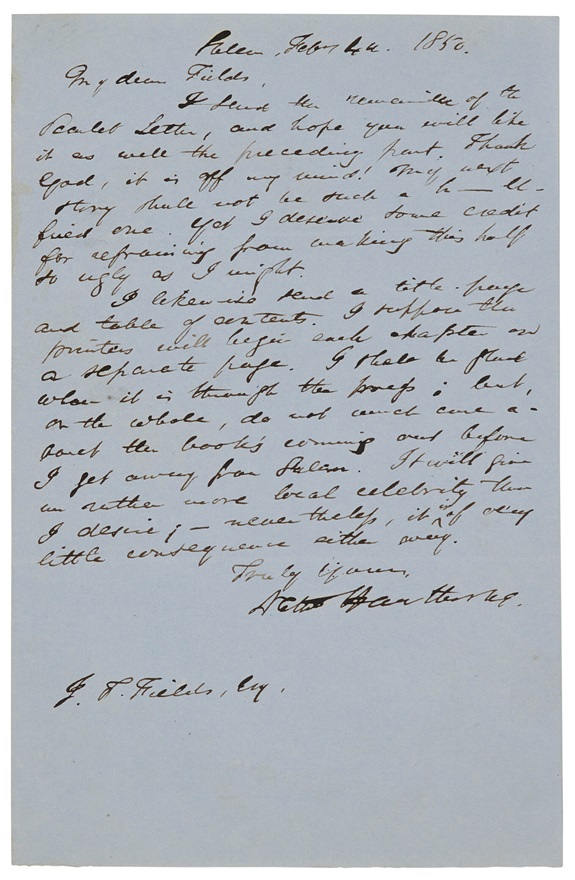 Salem, Feby 4th. 1850.
My dear Fields,
I send the remainder of the
Scarlet Letter, and hope you will like
it as well the preceding part. Thank
God, it is off my mind! My next
story shall not be such a h— ll-
fired one. Yet I deserve some credit
for refraining from making this half
so ugly as I might.
I likewise send a title-page
and table of contents. I suppose the
printers will begin each chapter on
a separate page. I shall be glad
when it is through the press; but,
on the whole, do not much care a-
bout the book's coming out before
I get away from Salem. It will give
me rather more local celebrity than
I desire;— nevertheless, it is of very
little consequence either way.
Truly Yours,
Nath Hawthorne.
J. T. Fields, Esq.